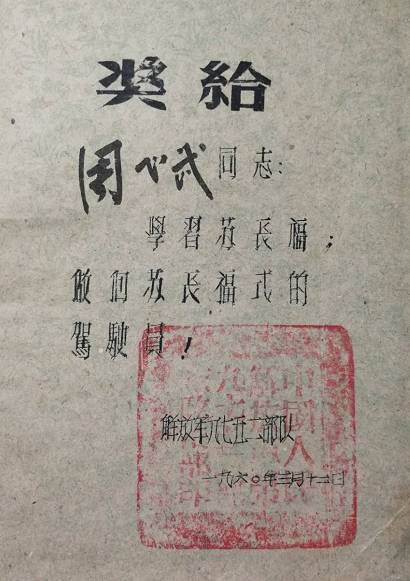 奖給
周 武同志:
學習苏長福;
做個苏長福式的
駕駛員!
解放军 七五 部队
一九六〇年三月十二日
中國人